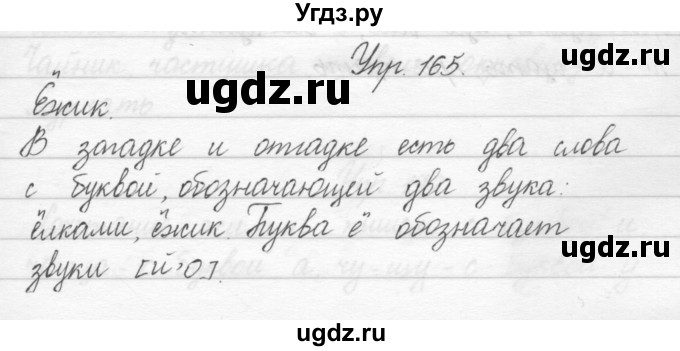 Угдз.ру
Упр. 165.
ugdz.ru ugdz.ru
Ёжик.
В загадке и отгадке есть два слова
с буквой, обозначающей два звука:
ёлками, ёжик. Буква ё обозначает
звуки [й'о].
ugdz.ru ugdz.ru
ugdz.ru